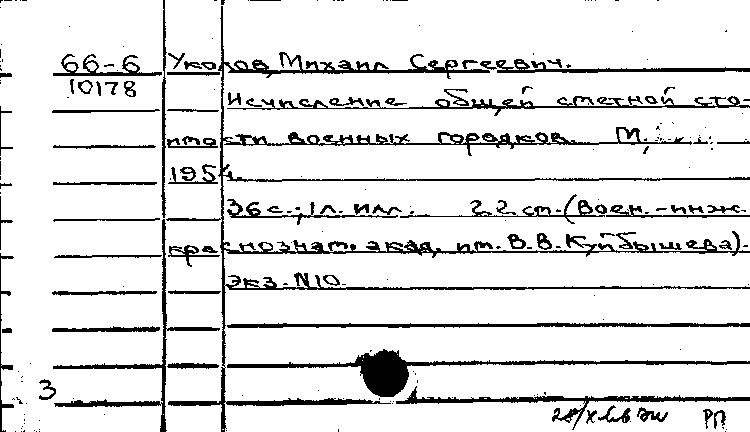 66-6 Уколов, Михаил Сергеевич.
10178
Исчисление общей сметной сто-
имости военных городков. М.,
1954.
36 с.; 1 л. илл. 22 см. (Воен.-инж.
краснознам. акад. им. В.В. Куйбышева).
Экз. N10.
3
28/X РП